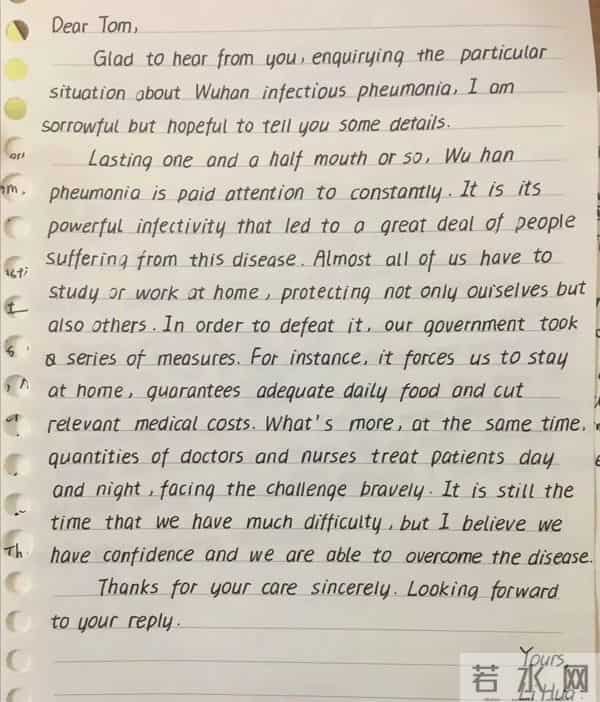 Dear Tom,
Glad to hear from you, enquirying the particular
situation about Wuhan infectious pheumonia, I am
sorrowful but hopeful to tell you some details.
Lasting one and a half mouth or so, Wu han
pheumonia is paid attention to constantly. It is its
powerful infectivity that led to a great deal of people
suffering from this disease. Almost all of us have to
study or work at home, protecting not only ourselves but
also others. In order to defeat it, our government took
a series of measures. For instance, it forces us to stay
at home, guarantees adequate daily food and cut
relevant medical costs. What's more, at the same time,
quantities of doctors and nurses treat patients day
and night, facing the challenge bravely. It is still the
time that we have much difficulty, but I believe we
have confidence and we are able to overcome the disease.
Thanks for your care sincerely. Looking forward
to your reply.
Yours,
Li Hua
若水网
Th.